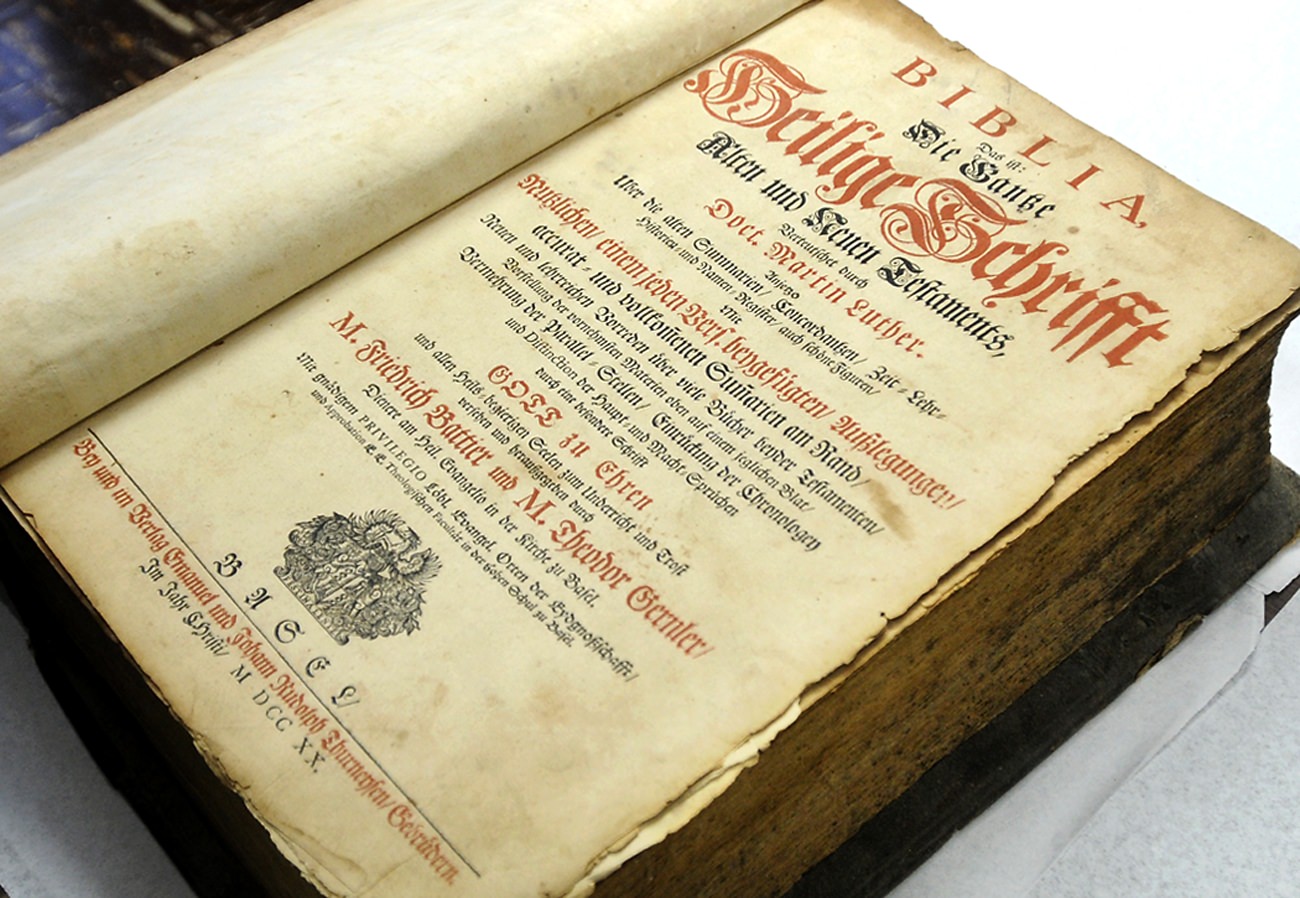 BIBLIA,
Das ist:
Die Gantze
Heilige Schrifft
Alten und Neuen Testaments,
Verteutschet durch
Doct. Martin Luther.
Anjezo
Uber die alten Summarien/ Concordantzen/ Zeit- Lehr-
Historien- und Namen-Register/ auch schöne Figuren/
Mit
Nutzlichen/ einem jeden Vers. beygefügten/ Außlegungen/
accurat- und vollkom̄enen Sum̄arien am Rand/
Neuen und lehrreichen Vorreden über viele Bücher beyder Testamenten/
Vorstellung der vornehmsten Materien oben auf einem jeglichen Blat/
Vermehrung der Parallel-Stellen/ Einrückung der Chronologey
und Distinction der Haupt- und Macht-Sprüchen
durch eine besondere Schrifft
GOTT zu Ehren
und allen Heils-begierigen Seelen zum Underricht und Trost
versehen und herausgegeben durch
M. Friedrich Battier und M. Theodor Gernler/
Dienere am Heil. Evangelio in der Kirche zu Basel.
Mit gnädigem PRIVILEGIO Löbl. Evangel. Orten der Eydgnoßschafft/
und Approbation E. E. Theologischen Facultät in der hohen Schul zu Basel.
BASEL/
Bey und im Verlag Emanuel und Johann Rudolph Thurneysen/ Gebrüdern.
Im Jahr Christi/ M DCC XX.